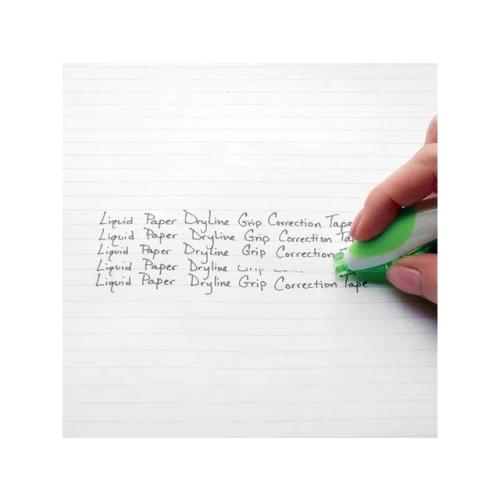 Liquid Paper DryLine Grip Correction Tape
Liquid Paper DryLine Grip Correction
Liquid Paper DryLine Grip Correction
Liquid Paper Dryline
Liquid Paper Dryline Grip Correction Tape